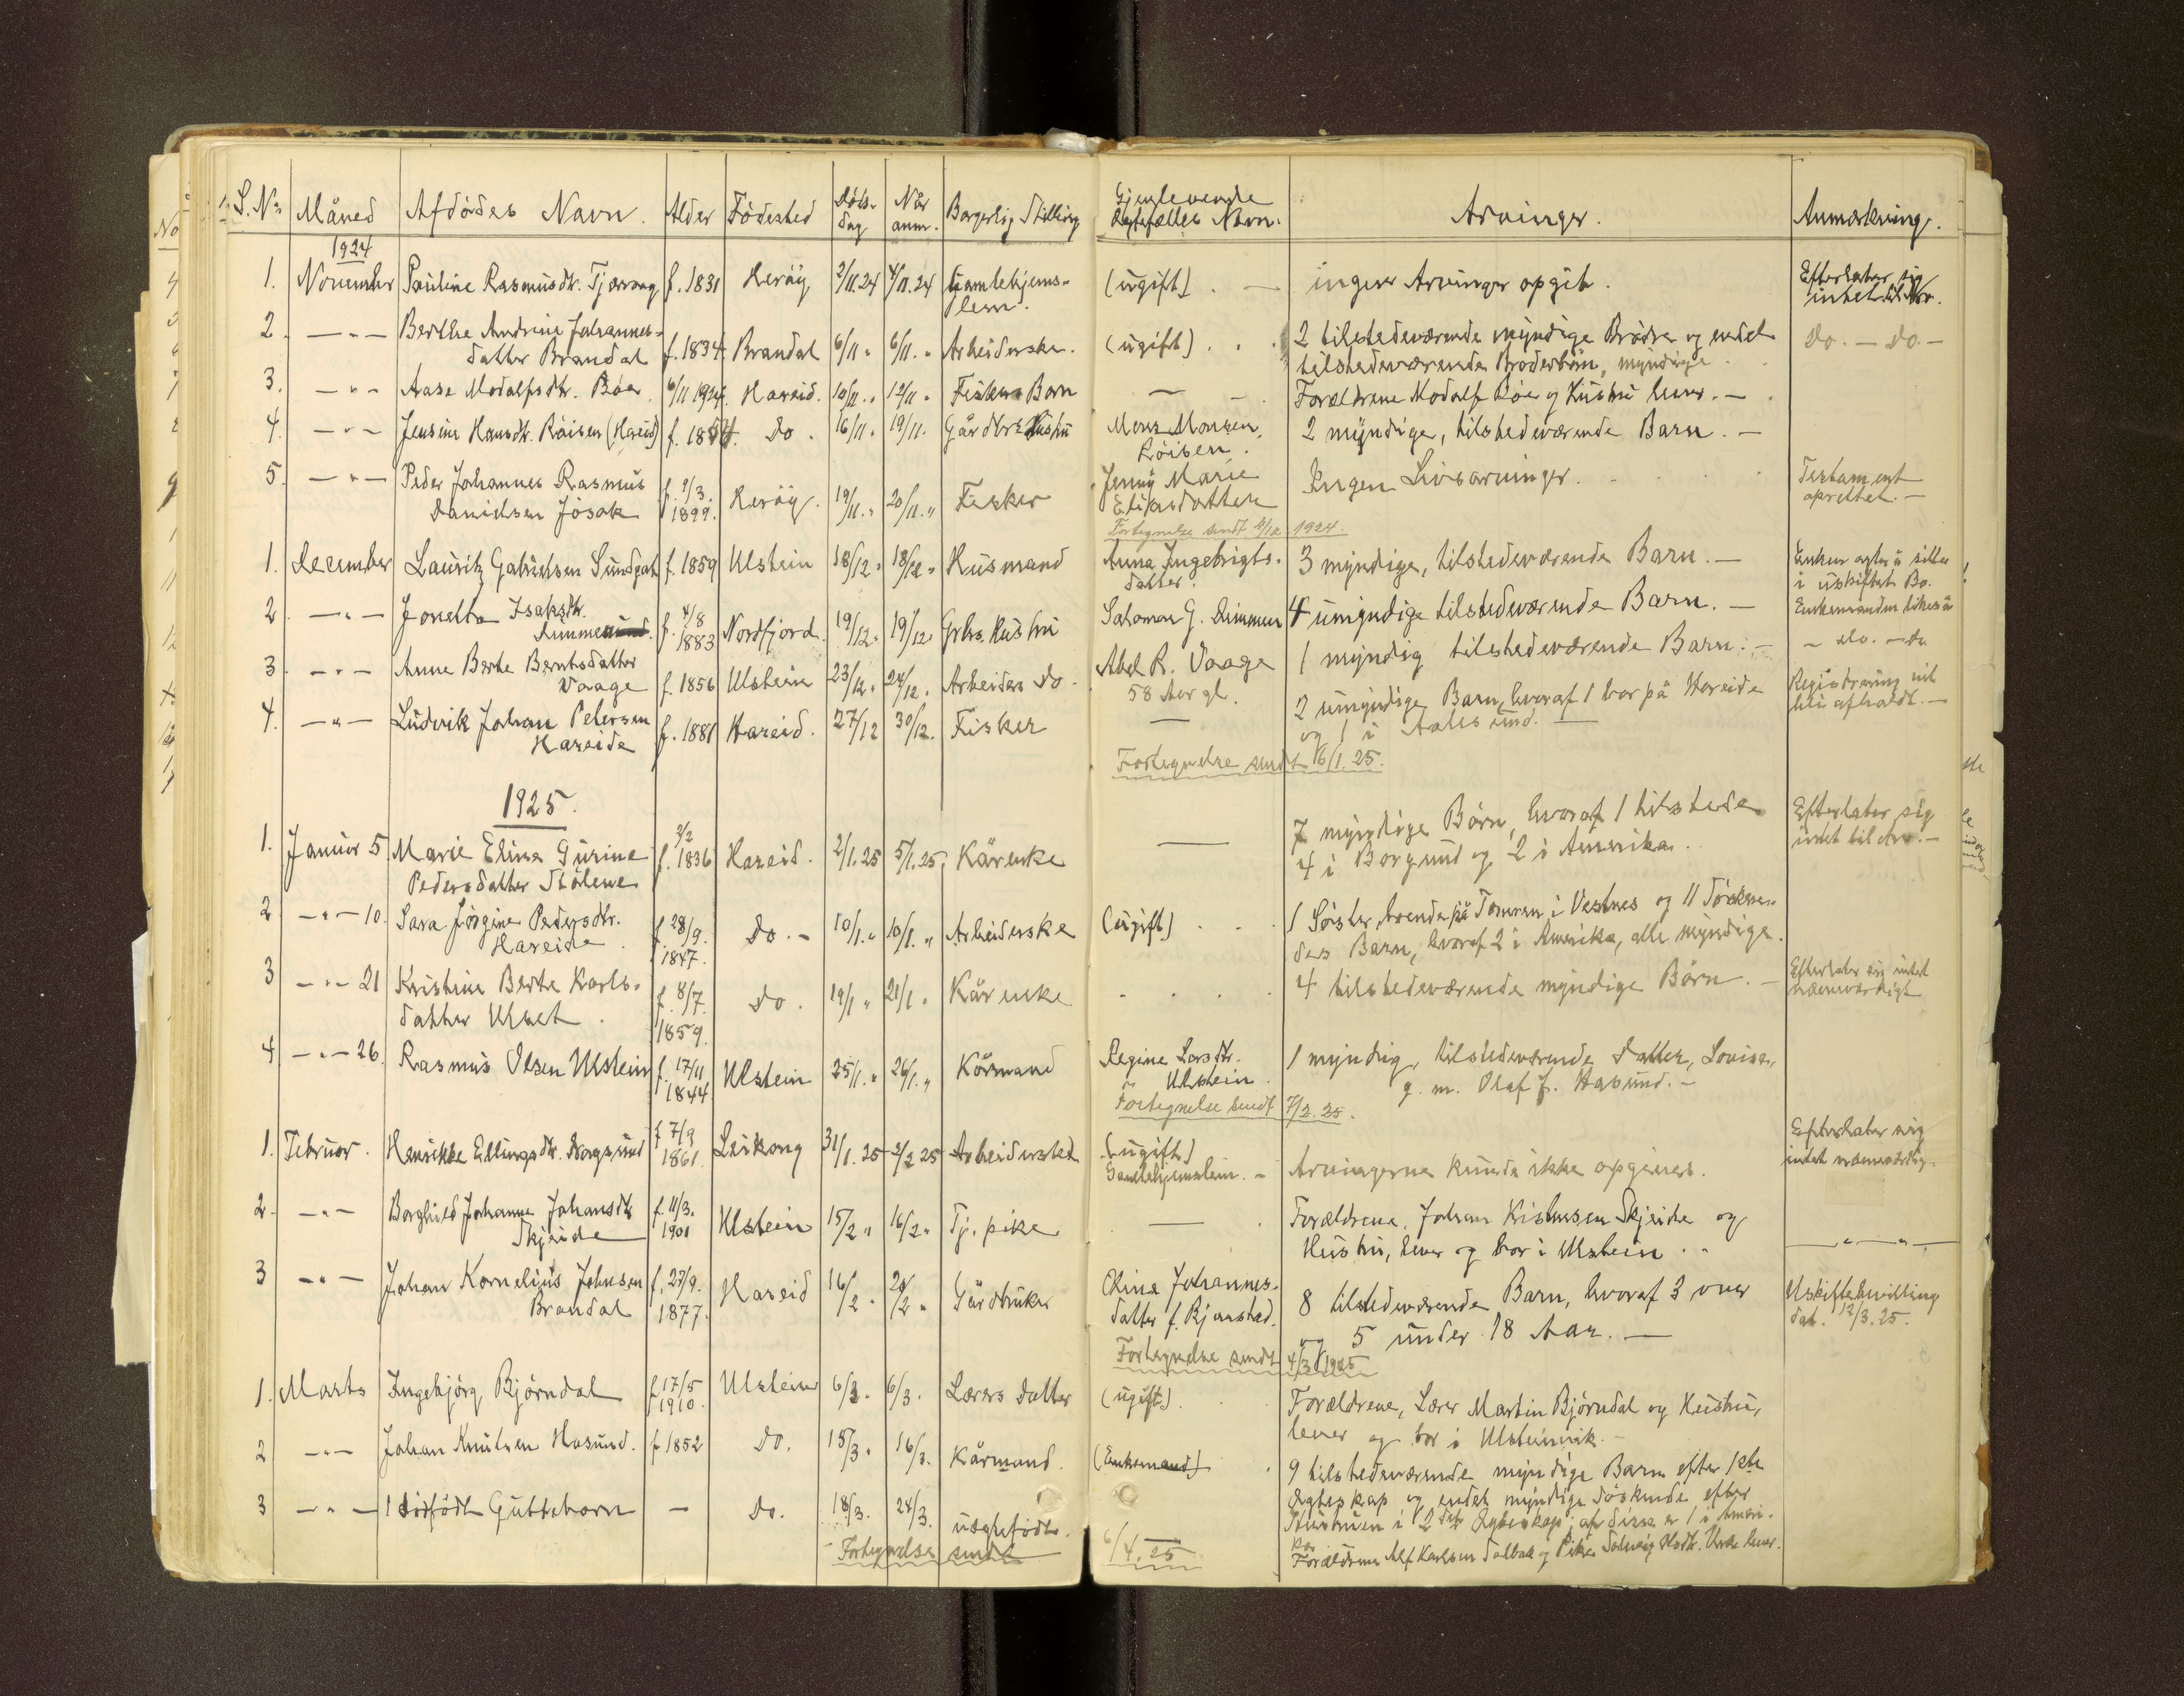 L. No. Måned Afdødes Navn. Alder Fødested Døds-dag Når anm. Borgerlig Stilling Gjenlevende Ægtefælles Navn. Arvinger. Anmærkning.
1924
1. November Pauline Rasmusdtr. Tjærvaag f. 1831 Herøy 2/11.24 4/11.24 Gamlehjems- (ugift) . — ingen Arvinger opgit. Efterlater sig
lem. intet til Arv.
2. —"— Berthe Andrine Johannes- (ugift) . . 2 tilstedeværende myndige Brødre og endel Do. — Do. —
datter Brandal f. 1834. Brandal 6/11 " 6/11. " Arbeiderske. tilstedeværende Broderbørn, myndige.
3. —"— Aase Modalfsdtr. Bøe 6/11 1924. Hareid. 10/11. " 12/11 " Fiskers Barn — Forældrene Modalf Bøe og Hustru lever. —
4. —"— Jensine Hansdtr. Røisen (Hareid) f. 1854. Do. 16/11. 19/11. Gårdbrs Hustru Mons Monsen 2 myndige, tilstedeværende Barn. —
Røisen.
5. —"— Peder Johannes Rasmus f. 9/3. Jenny Marie Ingen Livsarvinger. Testament
Danielsen Jøsok 1899. Herøy. 19/11. " 20/11. " Fisker Eliasdatter oprettet. —
Fortegnelse sendt 4/12. 1924.
1. December Lauritz Gabrielsen Sundgot f. 1859 Ulstein 18/12 " 18/12 " Husmand Anna Ingebrigts- 3 myndige, tilstedeværende Barn. — Enken agter å sitte
datter i uskiftet Bo.
2. —"— Jonetta Isaksdtr. f. 4/8 Salomon G. Dimmen 4 umyndige tilstedeværende Barn. — Enkemanden likeså
Dimmen. 1883 Nordfjord. 19/12 " 19/12 " Grbrs. Hustru
3. —"— Anne Berte Berntsdatter Abel R. Vaage 1 myndig tilstedeværende Barn. — — Do. — Do.
Vaage f. 1856 Ulstein 23/12. 24/12. Arbeiders Do. 58 Aar gl.
4. —"— Ludvik Johan Petersen — 2 umyndige Barn, hvoraf 1 bor på Hareide Registrering vil
Hareide f. 1881 Hareid. 27/12 30/12. Fisker og 1 i Aalesund. — bli afholdt. —
Fortegnelse sendt 6/1. 25.
1925.
1. Januar 5 Marie Elina Gurine 2/2 — 7 myndige Børn, hvoraf 1 tilstede Efterlater sig
Pedersdatter Stølene f. 1836 Hareid. 2/1. 25 5/1. 25. Kårenke 4 i Borgund og 2 i Amerika. intet til Arv. —
2 —"— 10. Sara Jørgine Pedersdtr. f. 28/9. Do. — 10/1. " 10/1. " Arbeiderske (ugift) . . 1 Søster, boende på Tomren i Vestnes og 11 Søsken-
Hareide. 1847. ders Barn, hvoraf 2 i Amerika, alle myndige.
3 —"— 21 Kristine Berte Karls- f. 8/7. Do. 19/1 " 21/1. " Kårenke . . . . 4 tilstedeværende myndige Børn. — Efterlater sig intet
datter Ulset. 1859. nævneværdigt
4 —"— 26. Rasmus Olsen Ulstein f. 17/11 Ulstein 25/1. " 26/1. " Kårmand Regine Larsdtr. 1 myndig, tilstedeværende Datter, Lovise,
1844 Ulstein. g. m. Olaf J. Hasund. —
Fortegnelse sendt 7/2. 25.
1. Februar. Henrikke Ellingsdtr. Dragsund f. 7/9 1861. Leikong 31/1. 25 2/2 25 Arbeiderske (ugift) Arvingerne kunde ikke opgives. Efterlater sig
Gamlehjemslem. — intet nævneværdig.
2. —"— Borghild Johanne Johansdtr f. 11/3. Ulstein 15/2 " 16/2 " Tj. pike — Forældrene, Johan Kristensen Skjeide og
Skjeide 1901 Hustru, lever og bor i Ulstein. —"—"—
3 —"— Johan Kornelius Johnsen f. 27/9. Hareid 16/2 " 20/2 " Gårdbruker Olina Johannes- 8 tilstedeværende Barn, hvoraf 3 over Uskiftebevilling
Brandal 1877. datter f. Bjørnstad. og 5 under 18 Aar. — dat. 12/3. 25.
Fortegnelse sendt 4/3 1925
1. Marts Ingebjørg Bjørndal f. 17/5 1910. Ulstein 6/3. 6/3. Lærers Datter (ugift) . Forældrene, Lærer Martin Bjørndal og Hustru,
lever og bor i Ulsteinvik. —
2 —"— Johan Knutsen Hasund. f. 1852 Do. 15/3. 16/3. Kårmand. (Enkemand) . 9 tilstedeværende myndige Barn efter 1ste
Ægteskap og endel myndige Søskende efter
Hustruen i 2det Ægteskap; af disse er 1 i Ameri-
ka
3 —"— 1 dødfødt Guttebarn — Do. 18/3. 24/3. uægtefødt. Forældrene Alf Karlsen Dalbak og Pike Solveig Olsdtr. Urke lever.
Fortegnelse sendt 6/4. 25